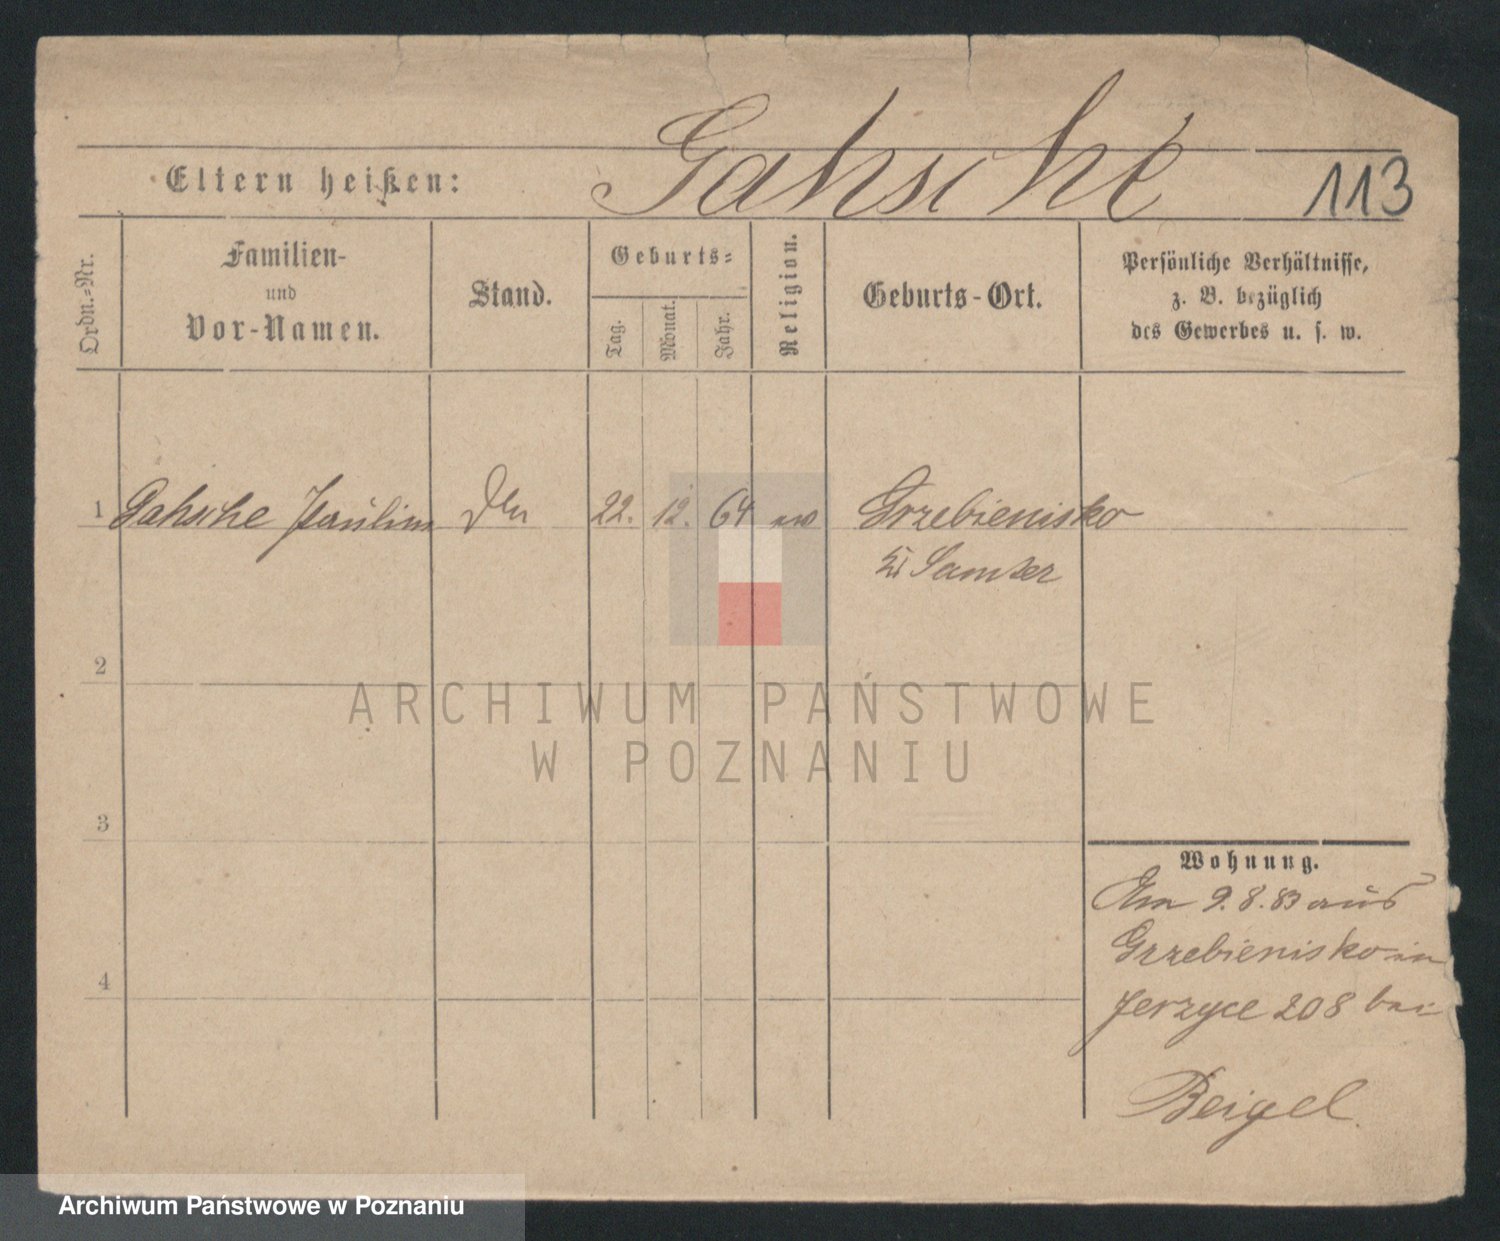 Gahsche
Eltern heißen:
113
Ordn.-Nr.
Familien-
und
Vor-Namen.
Stand.
Geburts-
Tag.
Monat.
Jahr.
Religion.
Geburts-Ort.
Persönliche Verhältnisse,
z. B. bezüglich
des Gewerbes u. s. w.
1 Gahsche Paulin 22. 12. 64 ev Grzebienisko
Samter
2
ARCHIWUM PAŃSTWOWE
W POZNANIU
3
Wohnung.
Am 9.8.83 aus
Grzebienisko in
4
Jerzyce 208 bei
Beigel
Archiwum Państwowe w Poznaniu